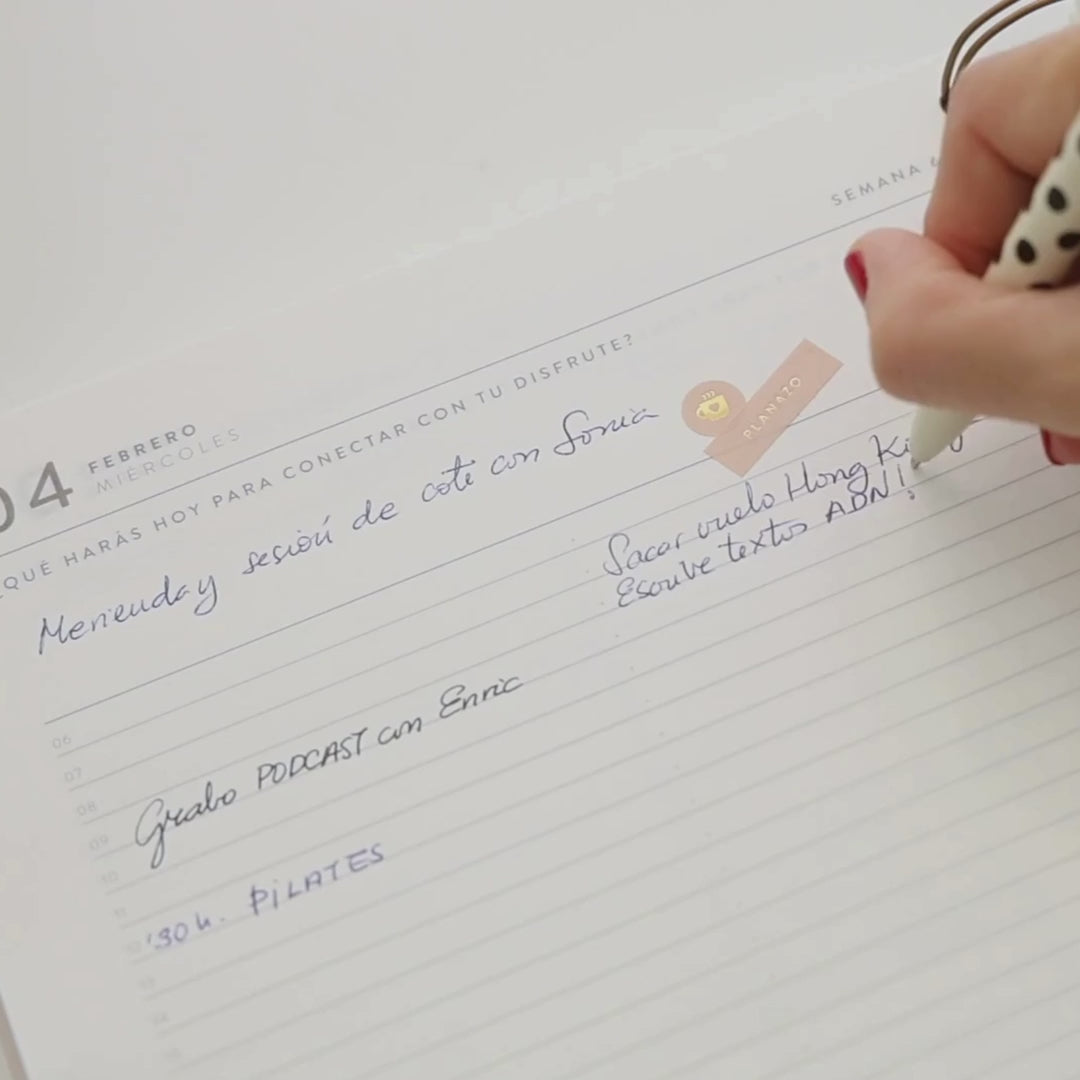 SEMANA
04 FEBRERO
MIÉRCOLES
QUÉ HARÁS HOY PARA CONECTAR CON TU DISFRUTE?
Merienda y sesión de coté con Sonia
PLANAZO
Sacar vuelo Hong
Escribe textos ADN!
06
07
08
09 Grabo PODCAST con Enric
10
11
'30 h. PiLATES